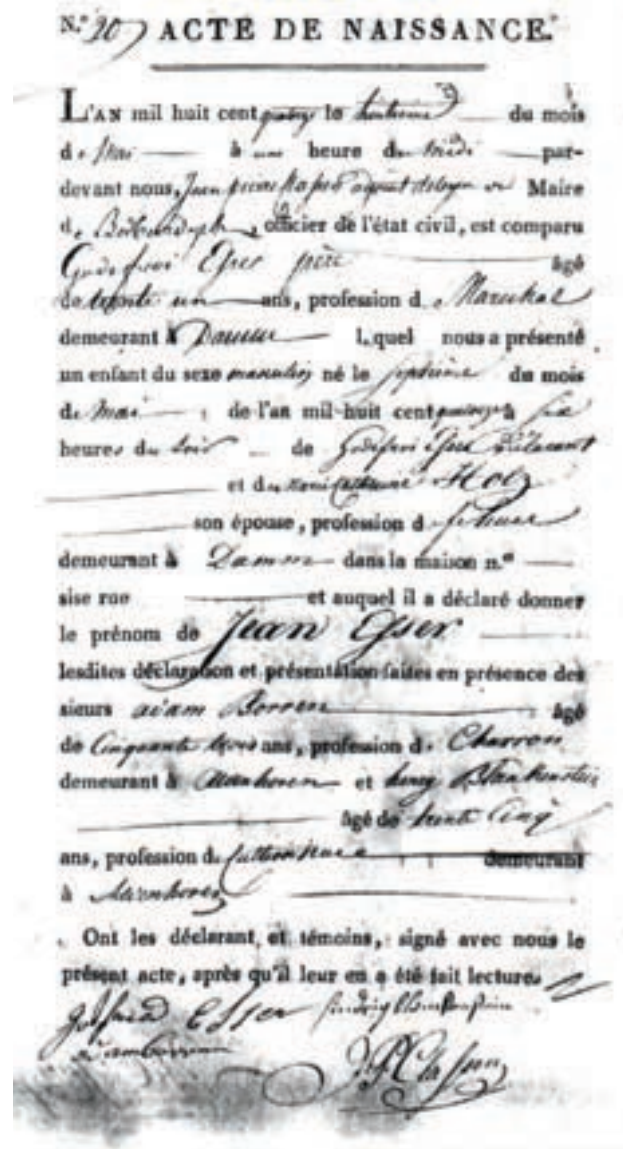 N.º 20 ACTE DE NAISSANCE.
L'AN mil huit cent quatorze le huitieme du mois
de Mai à une heure du midi par-
devant nous, Jean pierre adjoint Maire
d, officier de l'état civil, est comparu
Godefroi Esser père âgé
de trente un ans, profession de Marechal
demeurant à Damm lequel nous a présenté
un enfant du sexe masculin né le septième du mois
de Mai de l'an mil huit cent quatorze à six
heures du soir de Godefroi Esser Déclarant
et de Marie Catherine Holz
son épouse, profession d
demeurant à Damm dans la maison n.º
sise rue et auquel il a déclaré donner
le prénom de Jean Esser
lesdites déclaration et présentation faites en présence des
sieurs adam Borren âgé
de Cinquante trois ans, profession de Charron
demeurant à et henry Blankenstein
âgé de trente Cinq
ans, profession de Cultivateur demeurant
à
Ont les déclarant et témoins, signé avec nous le
présent acte, après qu'il leur en a été fait lecture.
Godfried Esser
adam borren